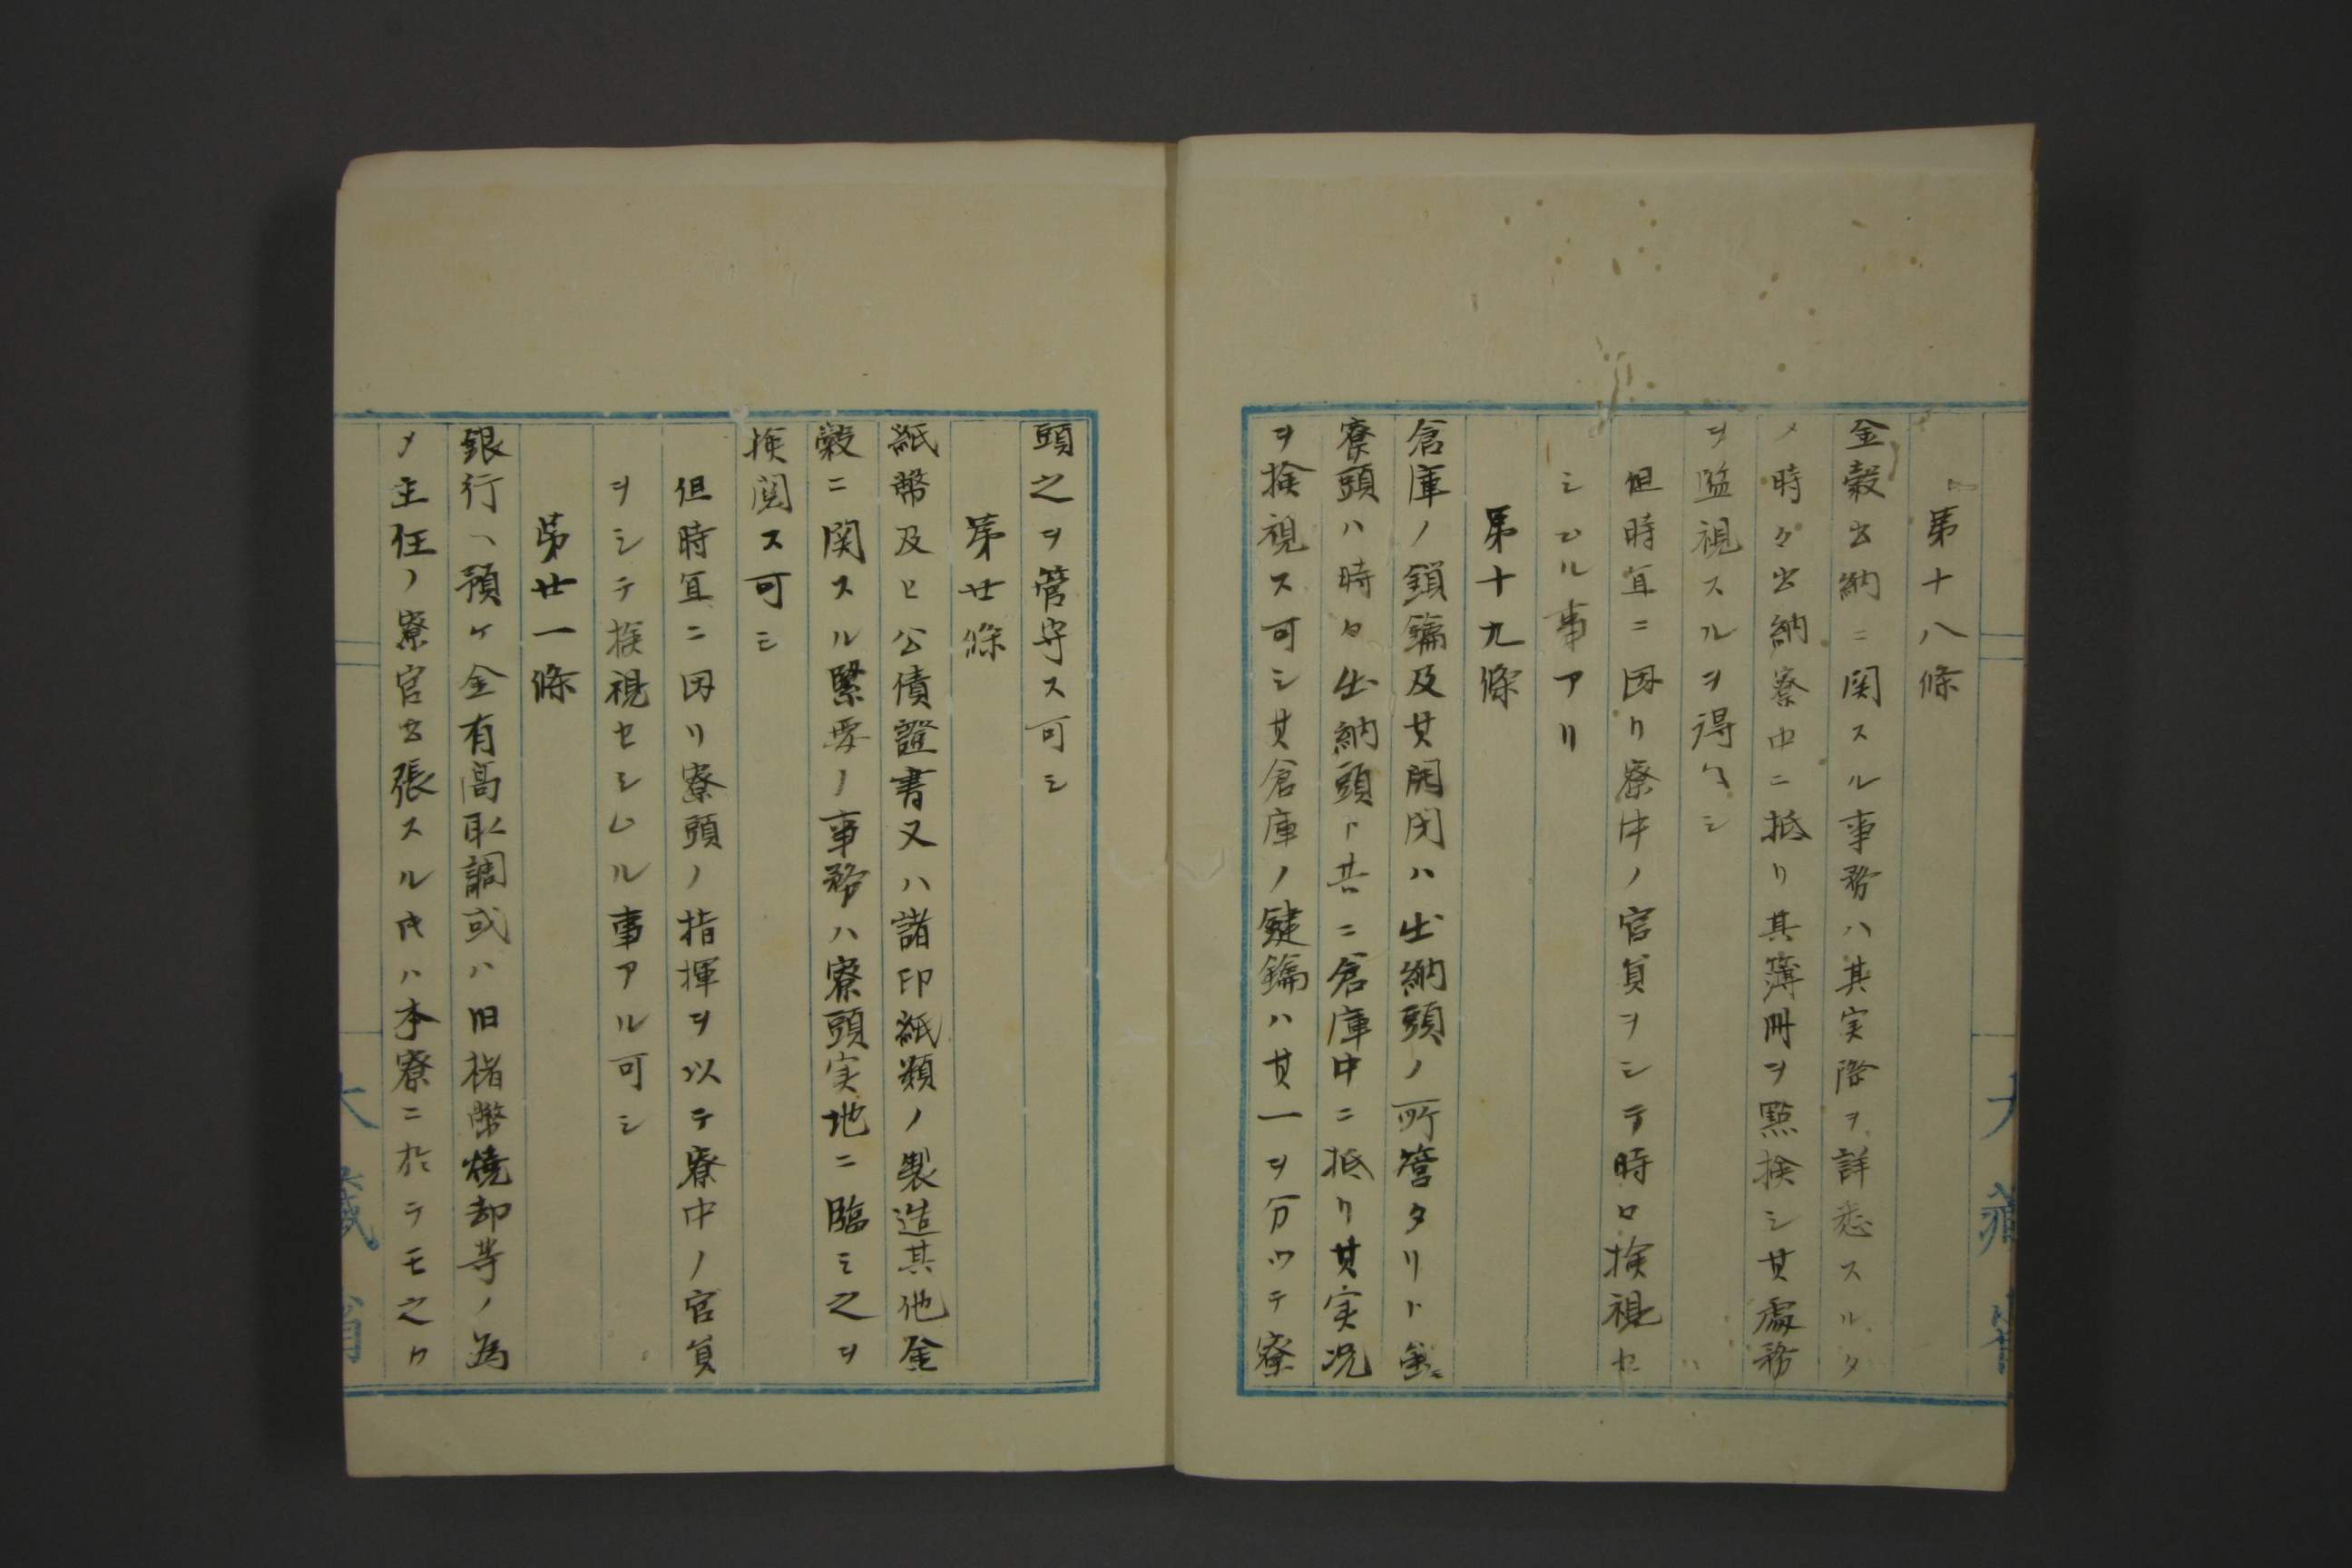 第十八條
金穀出納ニ関スル事務ハ其実際ヲ詳悉スルタ
メ時々出納寮中ニ抵リ其簿冊ヲ點検シ其處務
ヲ監視スルヲ得ヘシ
但時宜ニ因リ寮中ノ官員ヲシテ時々検視セ
シムル事アリ
第十九條
倉庫ノ鎖鑰及其開閉ハ出納頭ノ所管タリト虽モ
寮頭ハ時々出納頭ト共ニ倉庫中ニ抵リ其実況
ヲ検視ス可シ其倉庫ノ鍵鑰ハ其一ヲ分ツテ寮
頭之ヲ管守ス可シ
第廿條
紙幣及ヒ公債證書又ハ諸印紙類ノ製造其他金
穀ニ関スル緊要ノ事務ハ寮頭実地ニ臨ミ之ヲ
検閲ス可シ
但時宜ニ因リ寮頭ノ指揮ヲ以テ寮中ノ官員
ヲシテ検視セシムル事アル可シ
第廿一條
銀行ヘ預ケ金有高取調或ハ旧楮幣焼却等ノ為
メ主任ノ寮官出張スル𪜈ハ本寮ニ於テモ之カ
大藏省